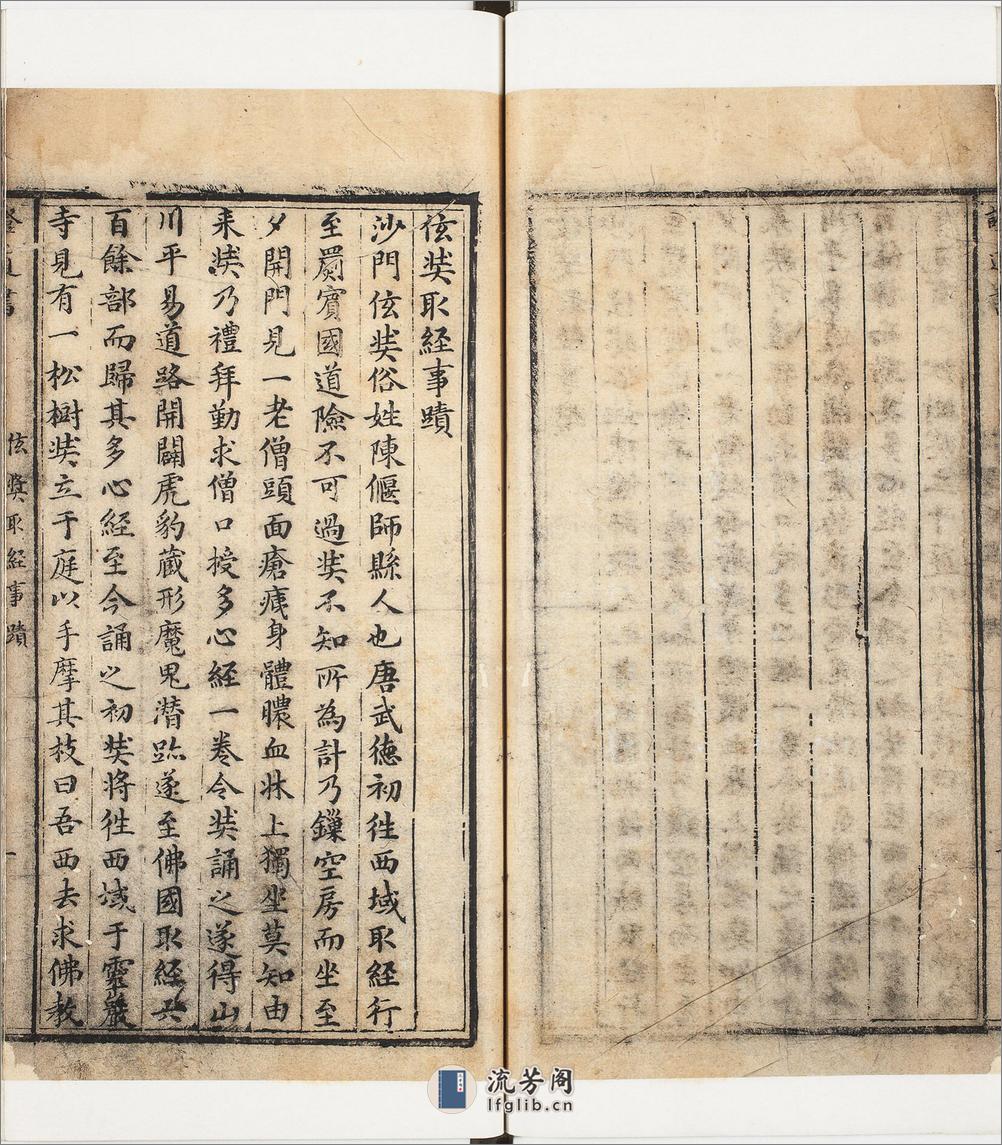 㚬奘取経事蹟
沙門㚬奘俗姓陳偃師縣人也唐武徳初徃西域取経行
至罽賔國道險不可過奘不知所為計乃鏁空房而坐至
夕開門見一老僧頭面瘡痍身體膿血牀上獨坐莫知由
来奘乃禮拜勤求僧口授多心経一卷令奘誦之遂得山
川平易道路開闢虎豹藏形魔鬼潜跡遂至佛國取経六
百餘部而歸其多心経至今誦之初奘將徃西域于靈巖
寺見有一松樹奘立于庭以手摩其枝曰吾西去求佛教
奘取経事蹟
一
流芳阁
lfglib.cn